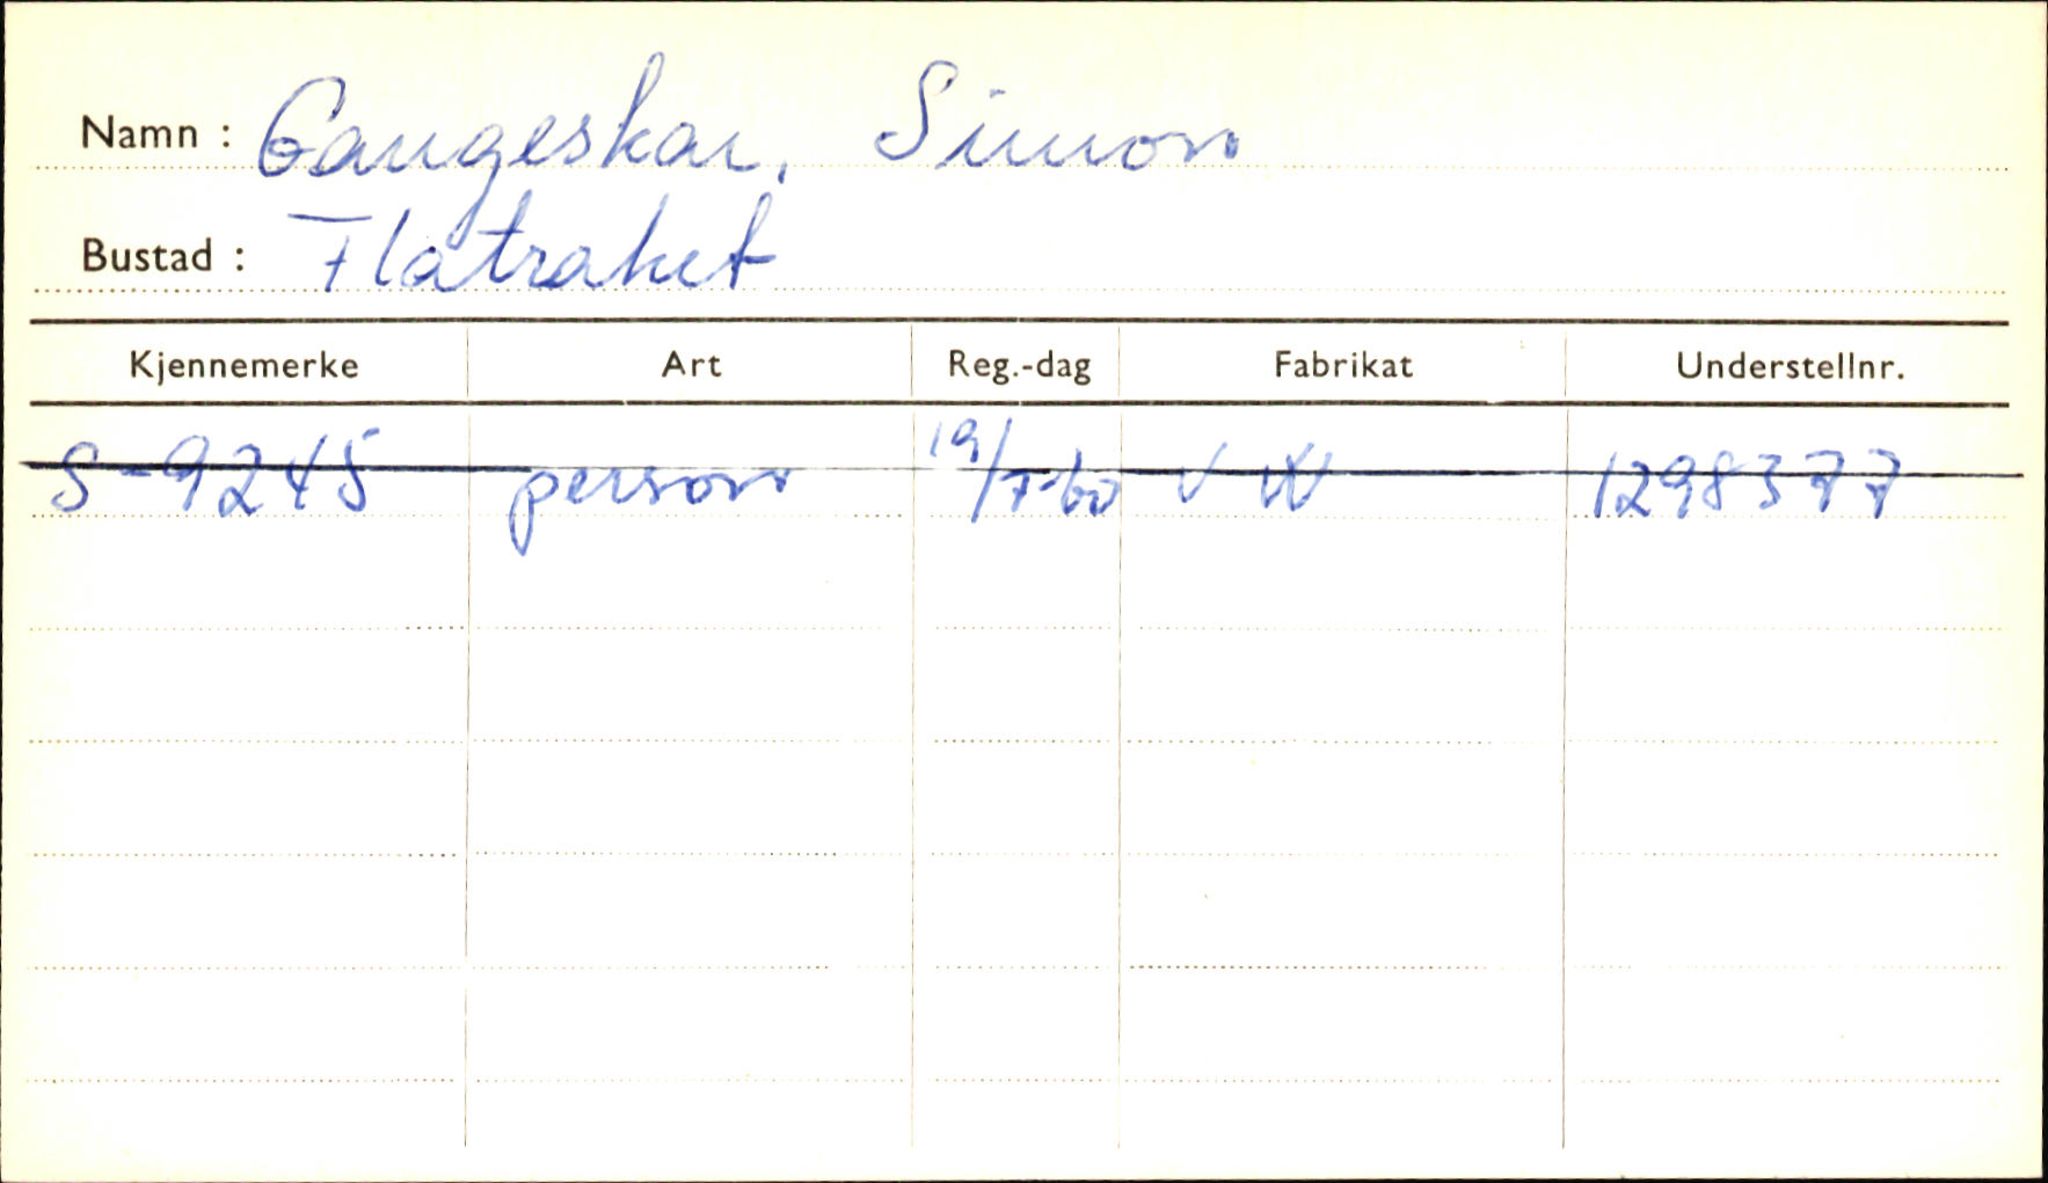 Namn : Gangeskar, Simon
Bustad : Flatraket
Kjennemerke Art Reg.-dag Fabrikat Understellnr.
S-9245 person 19/7-60 VW 1298377